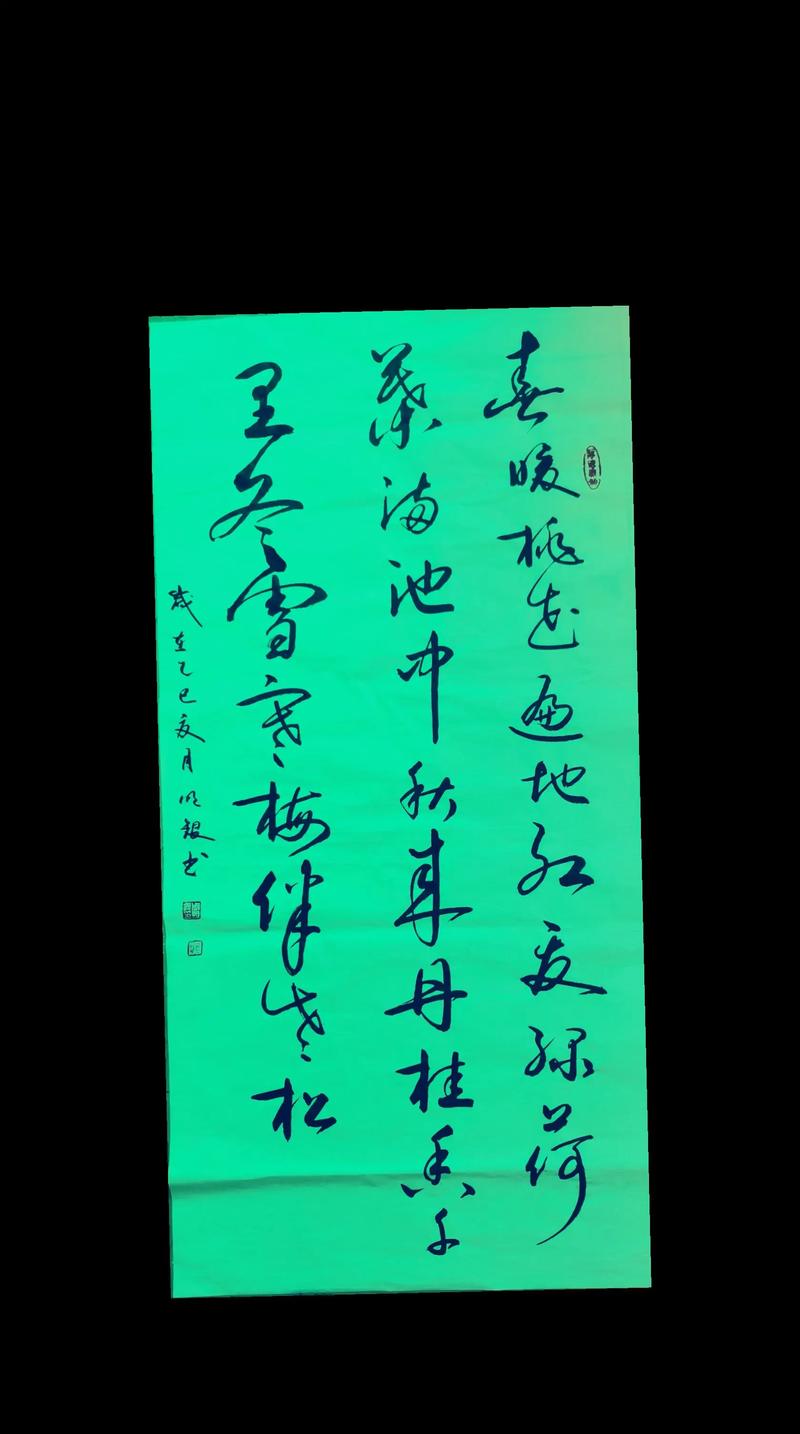 春暖桃花遍地红夏绿荷
葉满池中秋来丹桂香千
里冬雪寒梅伴松
歲在乙巳夏月明银书